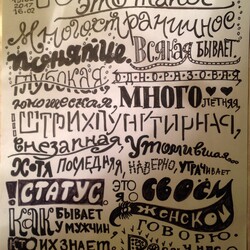 2017
16-02
это такое
Многогранчное
понятие
Всякая бывает,
глубокая,
одноразовая
юношеская,
МНОГОлетняя,
ШТРИХПУНКТИРНАЯ,
внезапная,
Утомившая...
ХОТЯ ПОСЛЕДНЯЯ, НАВЕРНО, УТРАЧИВАЕТ
!СТАТУС.
ЭТО Я О СВОЕМ
ЖЕНСКОМ
КАК БЫВАЕТ У МУЖЧИН
ГОВОРЮ.
КТО ИХ ЗНАЕТ